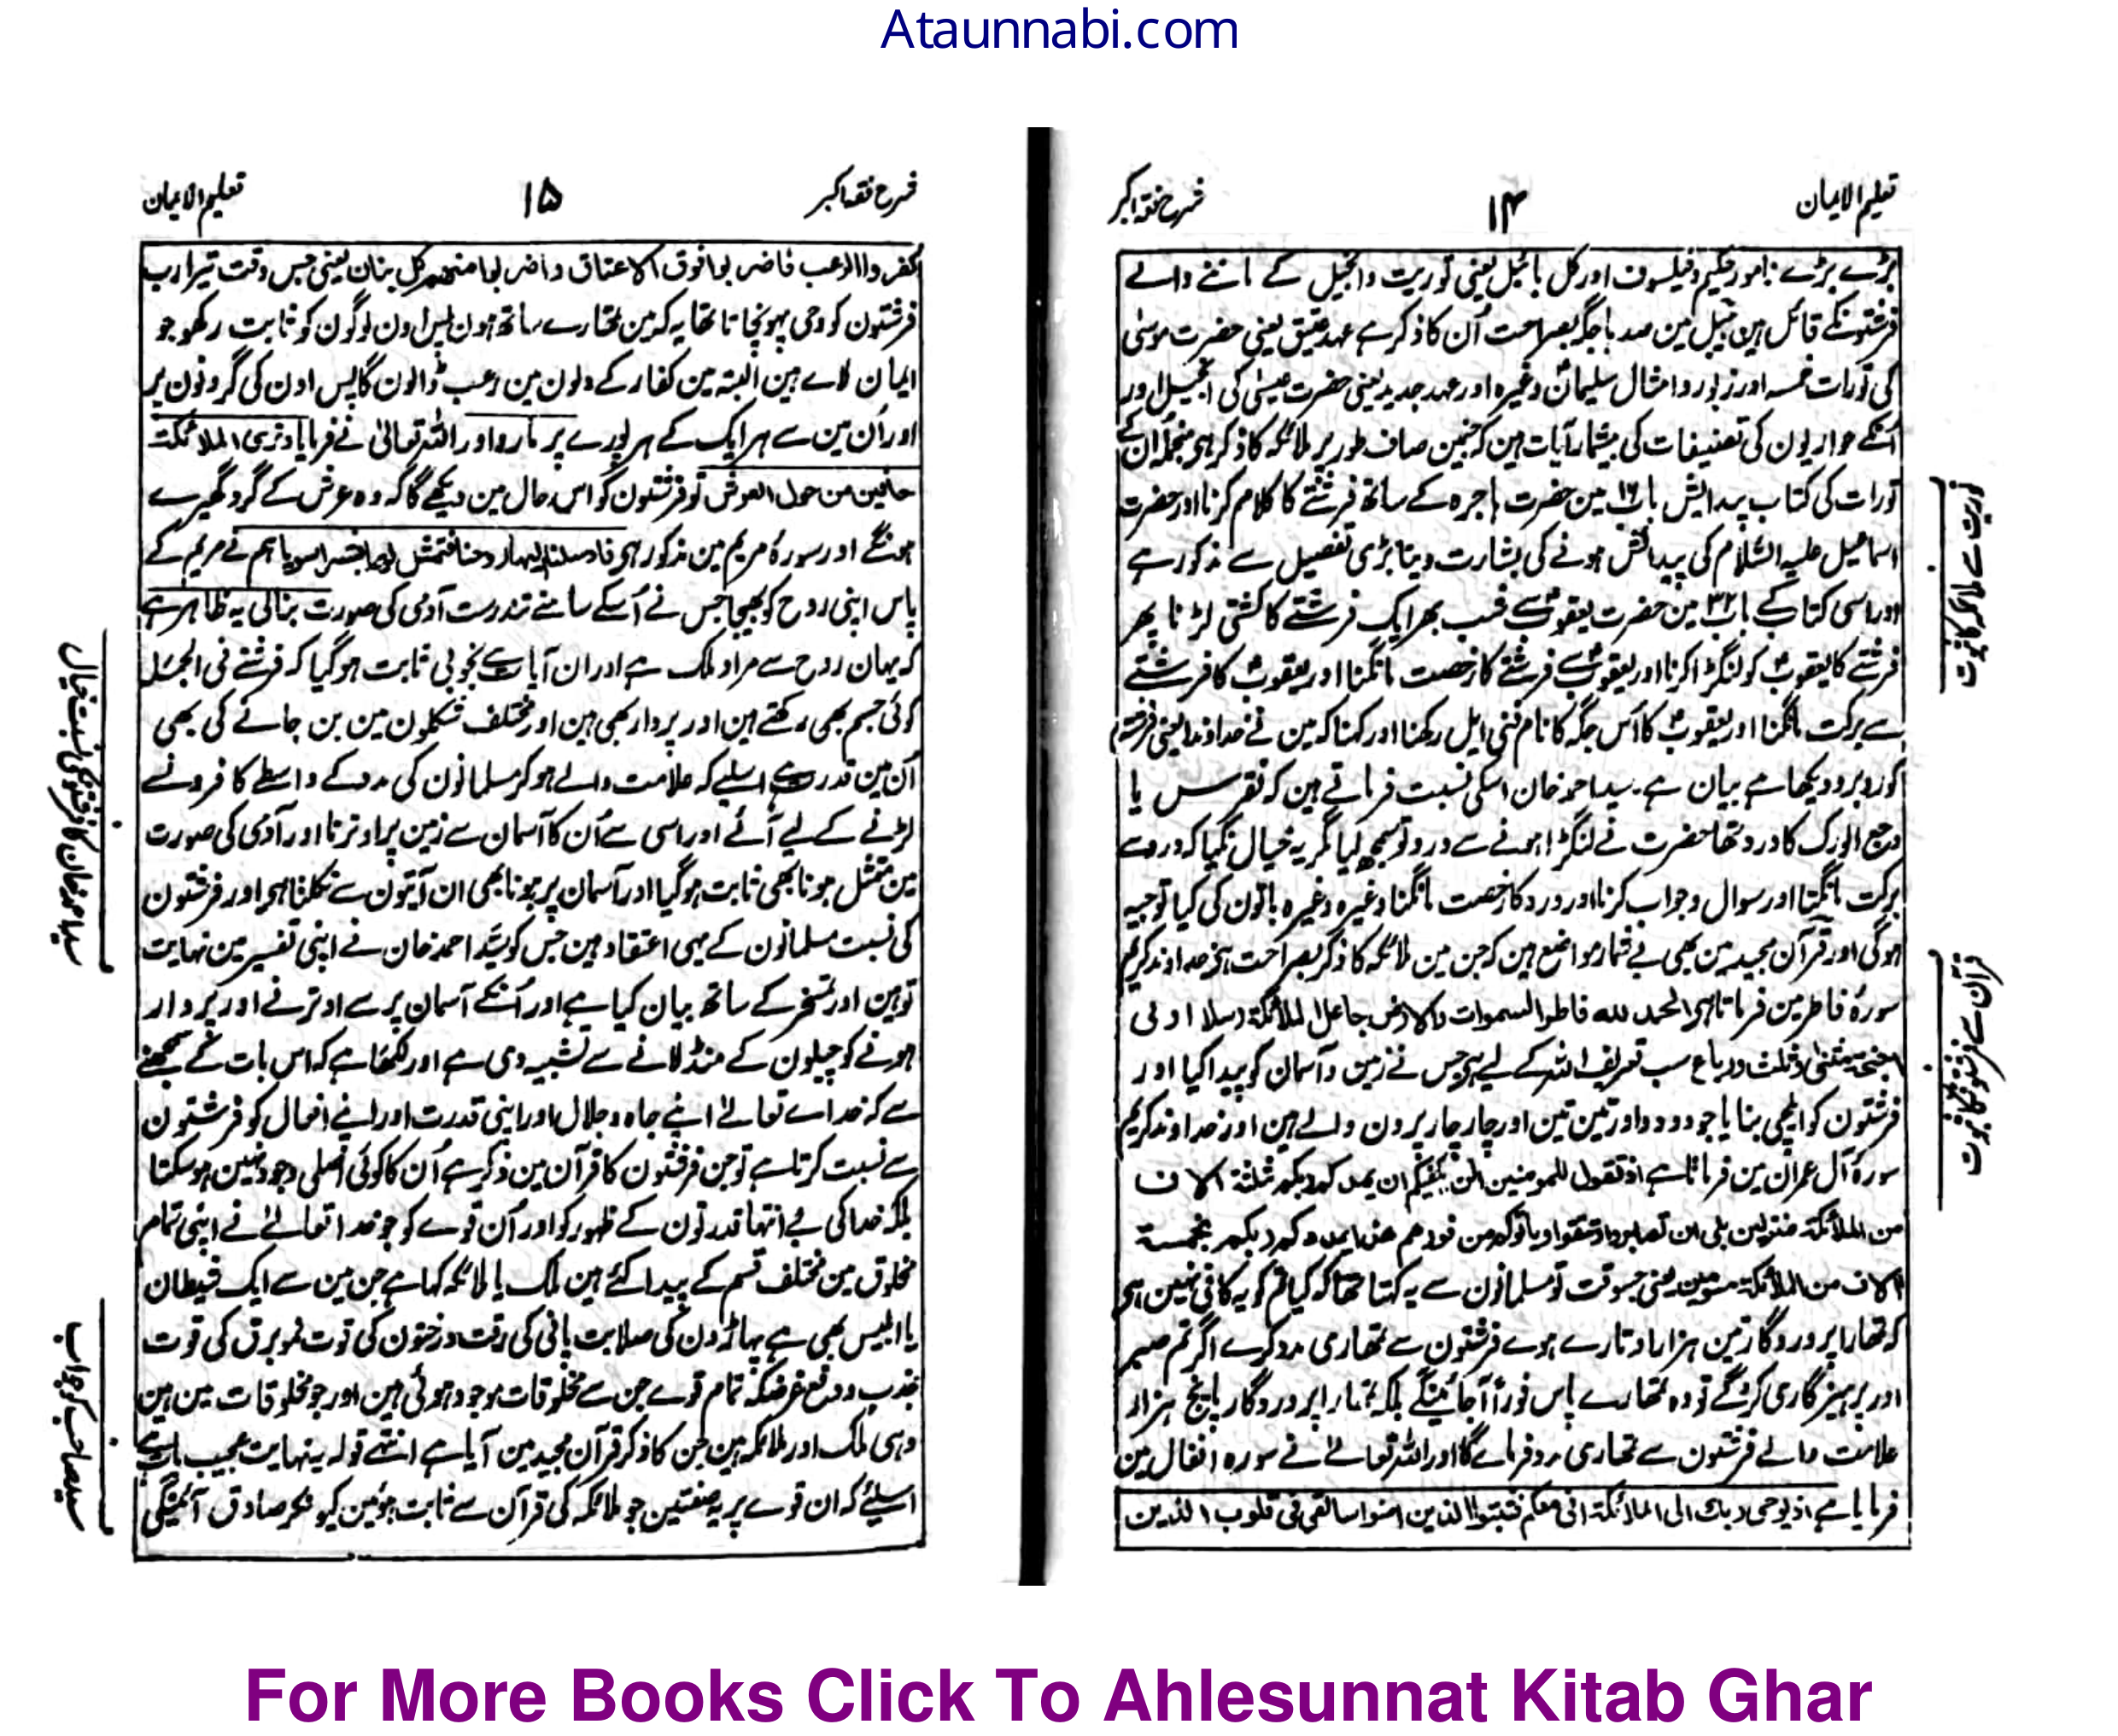 Ataunnabi.com
تعلیم الایمان
۱۴
شرح فقہ اکبر
بڑے بڑے نامور حکیم و فیلسوف اور کل بائبل یعنی توریت و انجیل کے ماننے والے
فرشتونکے قائل ہین بیبل مین صدہا جگہ بصراحت اُن کا ذکر ہے عہد عتیق یعنی حضرت موسٰی
کی تورات خمسہ اور زبور و امثال سلیمان وغیرہ اور عہد جدید یعنی حضرت عیسٰی کی انجیل اور
اُنکے حواریون کی تصنیفات کی بیشمار آیات ہین کہ جنمین صاف طور پر ملائکہ کا ذکر ہی منجملہ اُن کے
تورات کی کتاب پیدایش باب ۱۶ مین حضرت ہاجرہ کے ساتھ فرشتے کا کلام کرنا اور حضرت
اسماعیل علیہ السّلام کی پیدائش ہونے کی بشارت دینا بڑی تفصیل سے مذکور ہے
اور اسی کتاب کے باب ۳۲ مین حضرت یعقوبؑ سے شب بھر ایک فرشتے کا کشتی لڑنا پھر
فرشتے کا یعقوبؑ کو لنگڑا کرنا اور یعقوبؑ سے فرشتے کا رخصت مانگنا اور یعقوبؑ کا فرشتے
سے برکت مانگنا اور یعقوبؑ کا اُس جگہ کا نام فنی ایل رکھنا اور کہنا کہ مین نے خداوند یعنی فرشتہ
کو روبرو دیکھا ہے بیان ہے۔ سید احمد خان اسکی نسبت فرماتے ہین کہ نقرس یا
وجع الورک کا درد تھا حضرت نے لنگڑا ہونے سے درد تو سمجھ لیا مگر یہ خیال نکیا کہ درد سے
برکت مانگنا اور سوال و جواب کرنا اور درد کا رخصت مانگنا وغیرہ وغیرہ باتون کی کیا توجیہ
ہوگی اور قرآن مجید مین بھی بے شمار مواضع ہین کہ جن مین ملائکہ کا ذکر بصراحت ہی خداوند کریم
سورۂ فاطر مین فرماتا ہی الحمد للہ فاطر السموات والارض جاعل الملائکۃ رسلا اولی
اجنحۃ مثنیٰ وثلث ورباع سب تعریف اللہ کے لیے ہی جس نے زمین و آسمان کو پیدا کیا اور
فرشتون کو ایلچی بنایا جو دو دو اور تین تین اور چار چار پرون والے ہین اور خداوند کریم
سورۂ آل عمران مین فرماتا ہے اذ تقول للمومنین الن یکفیکم ان یمدکم ربکم بثلثۃ الاف
من الملائکۃ منزلین بلی ان تصبروا وتتقوا ویاتوکم من فورھم ھذا یمددکم ربکم بخمسۃ
الاف من الملائکۃ مسومین یعنی جسوقت تو مسلمانون سے یہ کہتا تھا کہ کیا تم کو یہ کافی نہین ہی
کہ تمھارا پروردگار تین ہزار اوتارے ہوے فرشتون سے تمھاری مدد کرے اگر تم صبر
اور پرہیزگاری کروگے تو وہ تمھارے پاس فوراً آجائینگے بلکہ تمھارا پروردگار پانچ ہزار
علامت والے فرشتون سے تمھاری مدد فرمائے گا اور اللہ تعالےٰ نے سورہ انفال مین
فرمایا ہے اذ یوحی ربک الی الملائکۃ انی معکم فثبتوا الذین امنوا سالقی فی قلوب الذین
توریت سے ملائکہ کا ثبوت
قرآن سے فرشتونکا ثبوت
شرح فقہ اکبر
۱۵
تعلیم الایمان
کفروا الرعب فاضربوا فوق الاعناق واضربوا منھم کل بنان یعنی جس وقت تیرا رب
فرشتون کو وحی پہونچاتا تھا یہ کہ مین تمھارے ساتھ ہون پس اون لوگون کو ثابت رکھو جو
ایمان لاے ہین البتہ مین کفار کے دلون مین رعب ڈالون گا پس اون کی گردنون پر
اور اُن مین سے ہر ایک کے ہر پورے پر مارو اور اللہ تعالیٰ نے فرمایا وتری الملائکۃ
حافین من حول العرش تو فرشتون کو اس حال مین دیکھے گا کہ وہ عرش کے گرد گھیرے
ہونگے اور سورۂ مریم مین مذکور ہی فارسلنا الیھا روحنا فتمثل لھا بشرا سویا ہم نے مریم کے
پاس اپنی روح کو بھیجا جس نے اُسکے سامنے تندرست آدمی کی صورت بنالی یہ ظاہر ہے
کہ یہان روح سے مراد ملک ہے اور ان آیات سے بخوبی ثابت ہوگیا کہ فرشتے فی الجملہ
کوئی جسم بھی رکھتے ہین اور پردار بھی ہین اور مختلف شکلون مین بن جانے کی بھی
اُن مین قدرت ہے اسلیے کہ علامت والے ہوکر مسلمانون کی مدد کے واسطے کافرون سے
لڑنے کے لیے آئے اور اسی سے اُن کا آسمان سے زمین پر اوترنا اور آدمی کی صورت
مین متمثل ہونا بھی ثابت ہوگیا اور آسمان پر ہونا بھی ان آیتون سے نکلتا ہی اور فرشتون
کی نسبت مسلمانون کے یہی اعتقاد ہین جس کو سیّد احمد خان نے اپنی تفسیر مین نہایت
توہین اور تمسخر کے ساتھ بیان کیا ہے اور اُنکے آسمان پر سے اوترنے اور پردار
ہونے کو چیلون کے منڈلانے سے تشبیہ دی ہے اور لکھا ہے کہ اس بات کے سمجھنے
سے کہ خداے تعالےٰ اپنے جاہ و جلال اور اپنی قدرت اور اپنے افعال کو فرشتون
سے نسبت کرتا ہے تو جن فرشتون کا قرآن مین ذکر ہے اُن کا کوئی اصلی وجود نہین ہوسکتا
بلکہ خدا کی بے انتہا قدرتون کے ظہور کو اور اُن قوے کو جو خدا تعالےٰ نے اپنی تمام
مخلوق مین مختلف قسم کے پیدا کئے ہین ملک یا ملائکہ کہا ہے جن مین سے ایک شیطان
یا ابلیس بھی ہے پہاڑون کی صلابت پانی کی رقت درختون کی قوت نمو برق کی قوت
جذب و دفع غرضکہ تمام قوے جن سے مخلوقات موجود ہوئی ہین اور جو مخلوقات مین ہین
وہی ملک اور ملائکہ ہین جن کا ذکر قرآن مجید مین آیا ہے انتہے قولہ یہ نہایت عجیب بات ہے
اسلیئے کہ ان قوے پر یہ صفتین جو ملائکہ کی قرآن سے ثابت ہوئین کیونکر صادق آئینگی
سید احمد خان کا فرشتونکی نسبت خیال
سید صاحب کو جواب
For More Books Click To Ahlesunnat Kitab Ghar